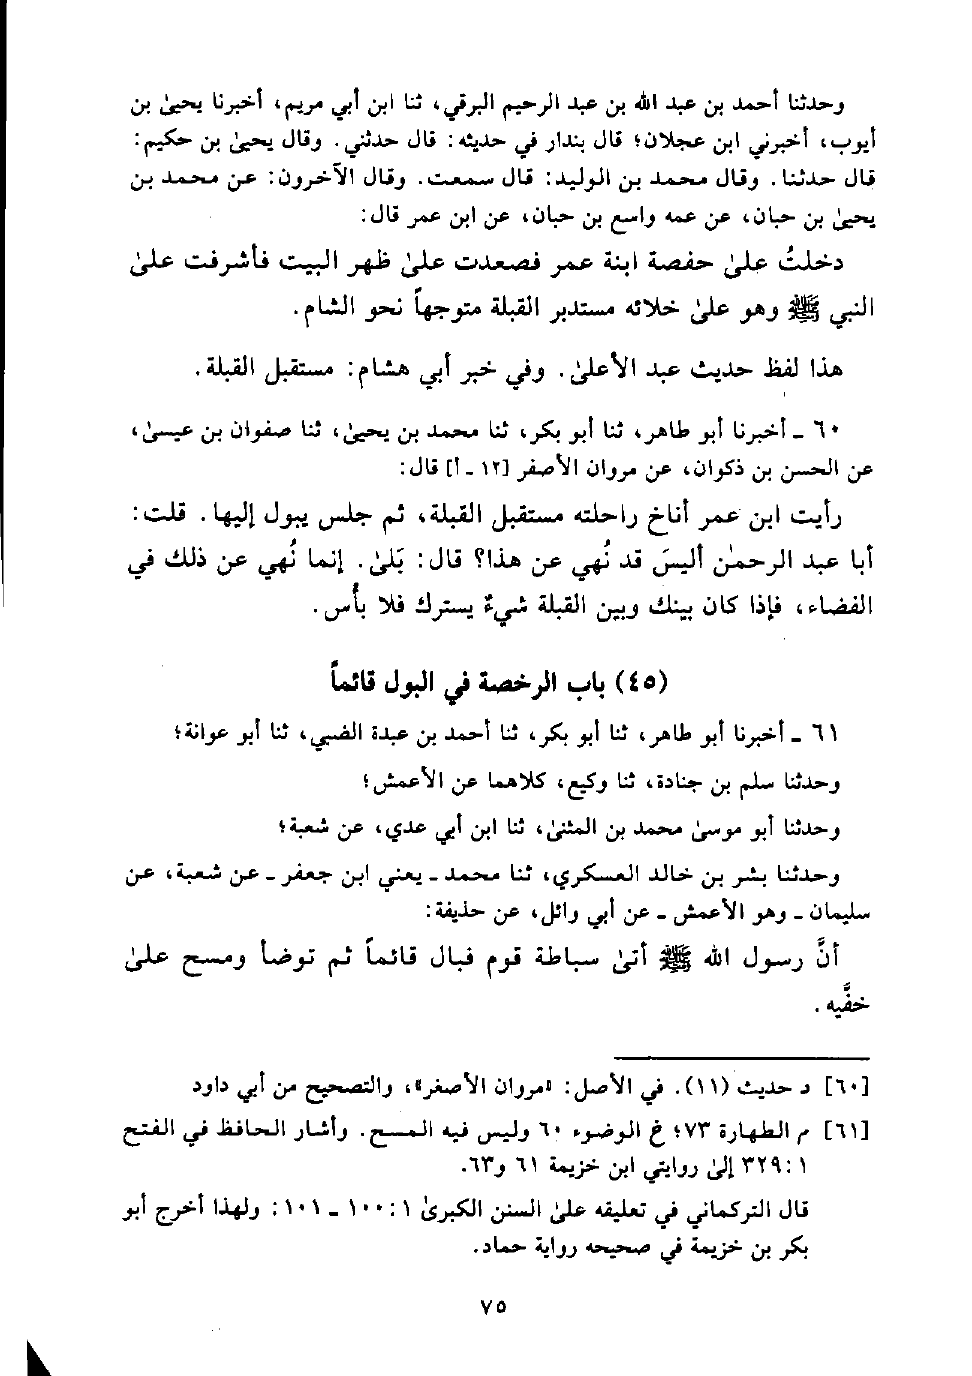 وحدثنا أحمد بن عبد الله بن عبد الرحيم البرقي، ثنا ابن أبي مريم، أخبرنا يحيىٰ بن
أيوب، أخبرني ابن عجلان؛ قال بندار في حديثه: قال حدثني. وقال يحيىٰ بن حكيم:
قال حدثنا. وقال محمد بن الوليد: قال سمعت. وقال الآخرون: عن محمد بن
يحيىٰ بن حبان، عن عمه واسع بن حبان، عن ابن عمر قال:
دخلتُ علىٰ حفصة ابنة عمر فصعدت علىٰ ظهر البيت فأشرفت علىٰ
النبي ﷺ وهو علىٰ خلائه مستدبر القبلة متوجهاً نحو الشام.
هذا لفظ حديث عبد الأعلىٰ. وفي خبر أبي هشام: مستقبل القبلة.
٦٠ - أخبرنا أبو طاهر، ثنا أبو بكر، ثنا محمد بن يحيىٰ، ثنا صفوان بن عيسىٰ،
عن الحسن بن ذكوان، عن مروان الأصفر [١٢ - أ] قال:
رأيت ابن عمر أناخ راحلته مستقبل القبلة، ثم جلس يبول إليها. قلت:
أبا عبد الرحمٰن أليسَ قد نُهي عن هذا؟ قال: بَلىٰ. إنما نُهي عن ذلك في
الفضاء، فإذا كان بينك وبين القبلة شيءٌ يسترك فلا بأس.
(٤٥) باب الرخصة في البول قائماً
٦١ - أخبرنا أبو طاهر، ثنا أبو بكر، ثنا أحمد بن عبدة الضبي، ثنا أبو عوانة؛
وحدثنا سلم بن جنادة، ثنا وكيع، كلاهما عن الأعمش؛
وحدثنا أبو موسىٰ محمد بن المثنىٰ، ثنا ابن أبي عدي، عن شعبة؛
وحدثنا بشر بن خالد العسكري، ثنا محمد - يعني ابن جعفر - عن شعبة، عن
سليمان - وهو الأعمش - عن أبي وائل، عن حذيفة:
أنَّ رسول الله ﷺ أتىٰ سباطة قوم فبال قائماً ثم توضأ ومسح علىٰ
خفَّيه.
[٦٠] د حديث (١١). في الأصل: «مروان الأصغر»، والتصحيح من أبي داود
[٦١] م الطهارة ٧٣؛ خ الوضوء ٦٠ وليس فيه المسح. وأشار الحافظ في الفتح
١: ٣٢٩ إلىٰ روايتي ابن خزيمة ٦١ و٦٣.
قال التركماني في تعليقه علىٰ السنن الكبرىٰ ١: ١٠٠ - ١٠١: ولهذا أخرج أبو
بكر بن خزيمة في صحيحه رواية حماد.
٧٥